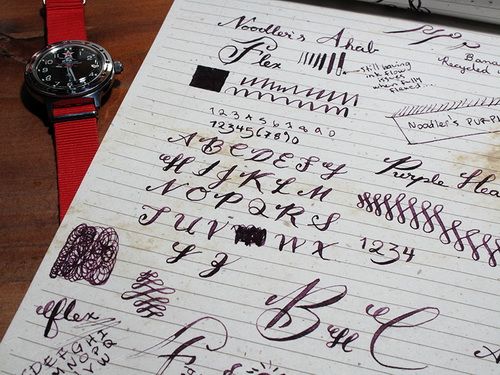 Noodler's Ahab
Flex
still having
ink flow
issues
when fully
flexed...
Banana
Recycled
Noodler's PURPL
1 2 3 4 5 6 7 8 9 0
1 2 3 4 5 6 7 8 9 0
A B C D E F G
H I J K L M
N O P Q R S
T U V W X
Y Z
Purple Hea
1234
flex
B
C
D E F G H I
M N O P Q
Y W